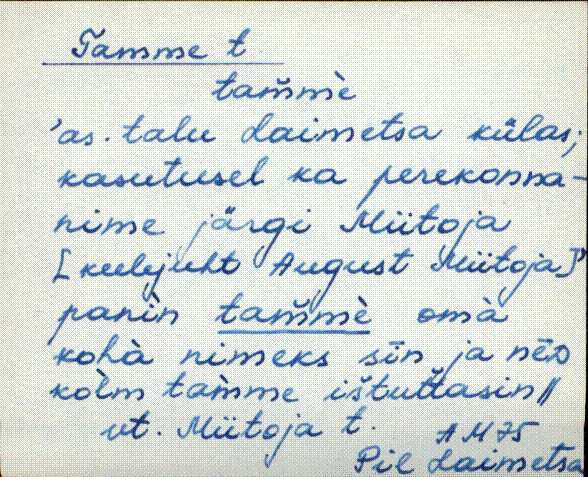 Tamme t.
tam̆mè
'as. talu Laimetsa külas;
kasutusel ka perekonna-
nime järgi Miitoja
[keelejuht August Miitoja]'
panìn tam̆mè omà
kohà nimeks sīn ja nēD
kolm tam̀me ištut̆tasin ||
vt. Miitoja t.
AM 75
Pil Laimetsa